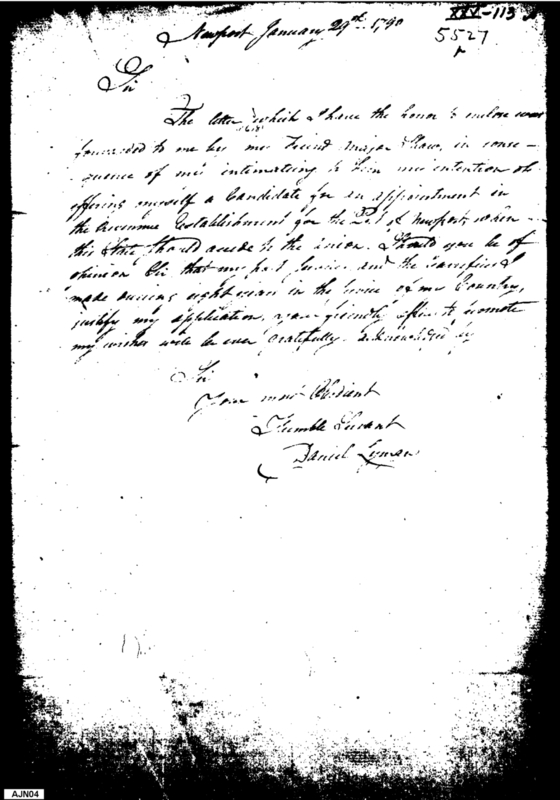 XXVI-113
5527
Newport January 29th. 1790
Sir
The letter which I have the honor to enclose was
forwarded to me by my Friend Major Shaw, in conse-
quence of my intimating to him my intention of
offering myself a Candidate for an appointment in
the Revenue Establishment for the Port of Newport, when
this State should accede to the union. Should you be of
opinion Sir that my past Services and the sacrifices I
made during eight years in the service of my Country,
justify my application, your friendly efforts to promote
my wishes will be ever gratefully acknowledged by
Sir
Your most Obedient
Humble Servant
Daniel Lyman
AJN04